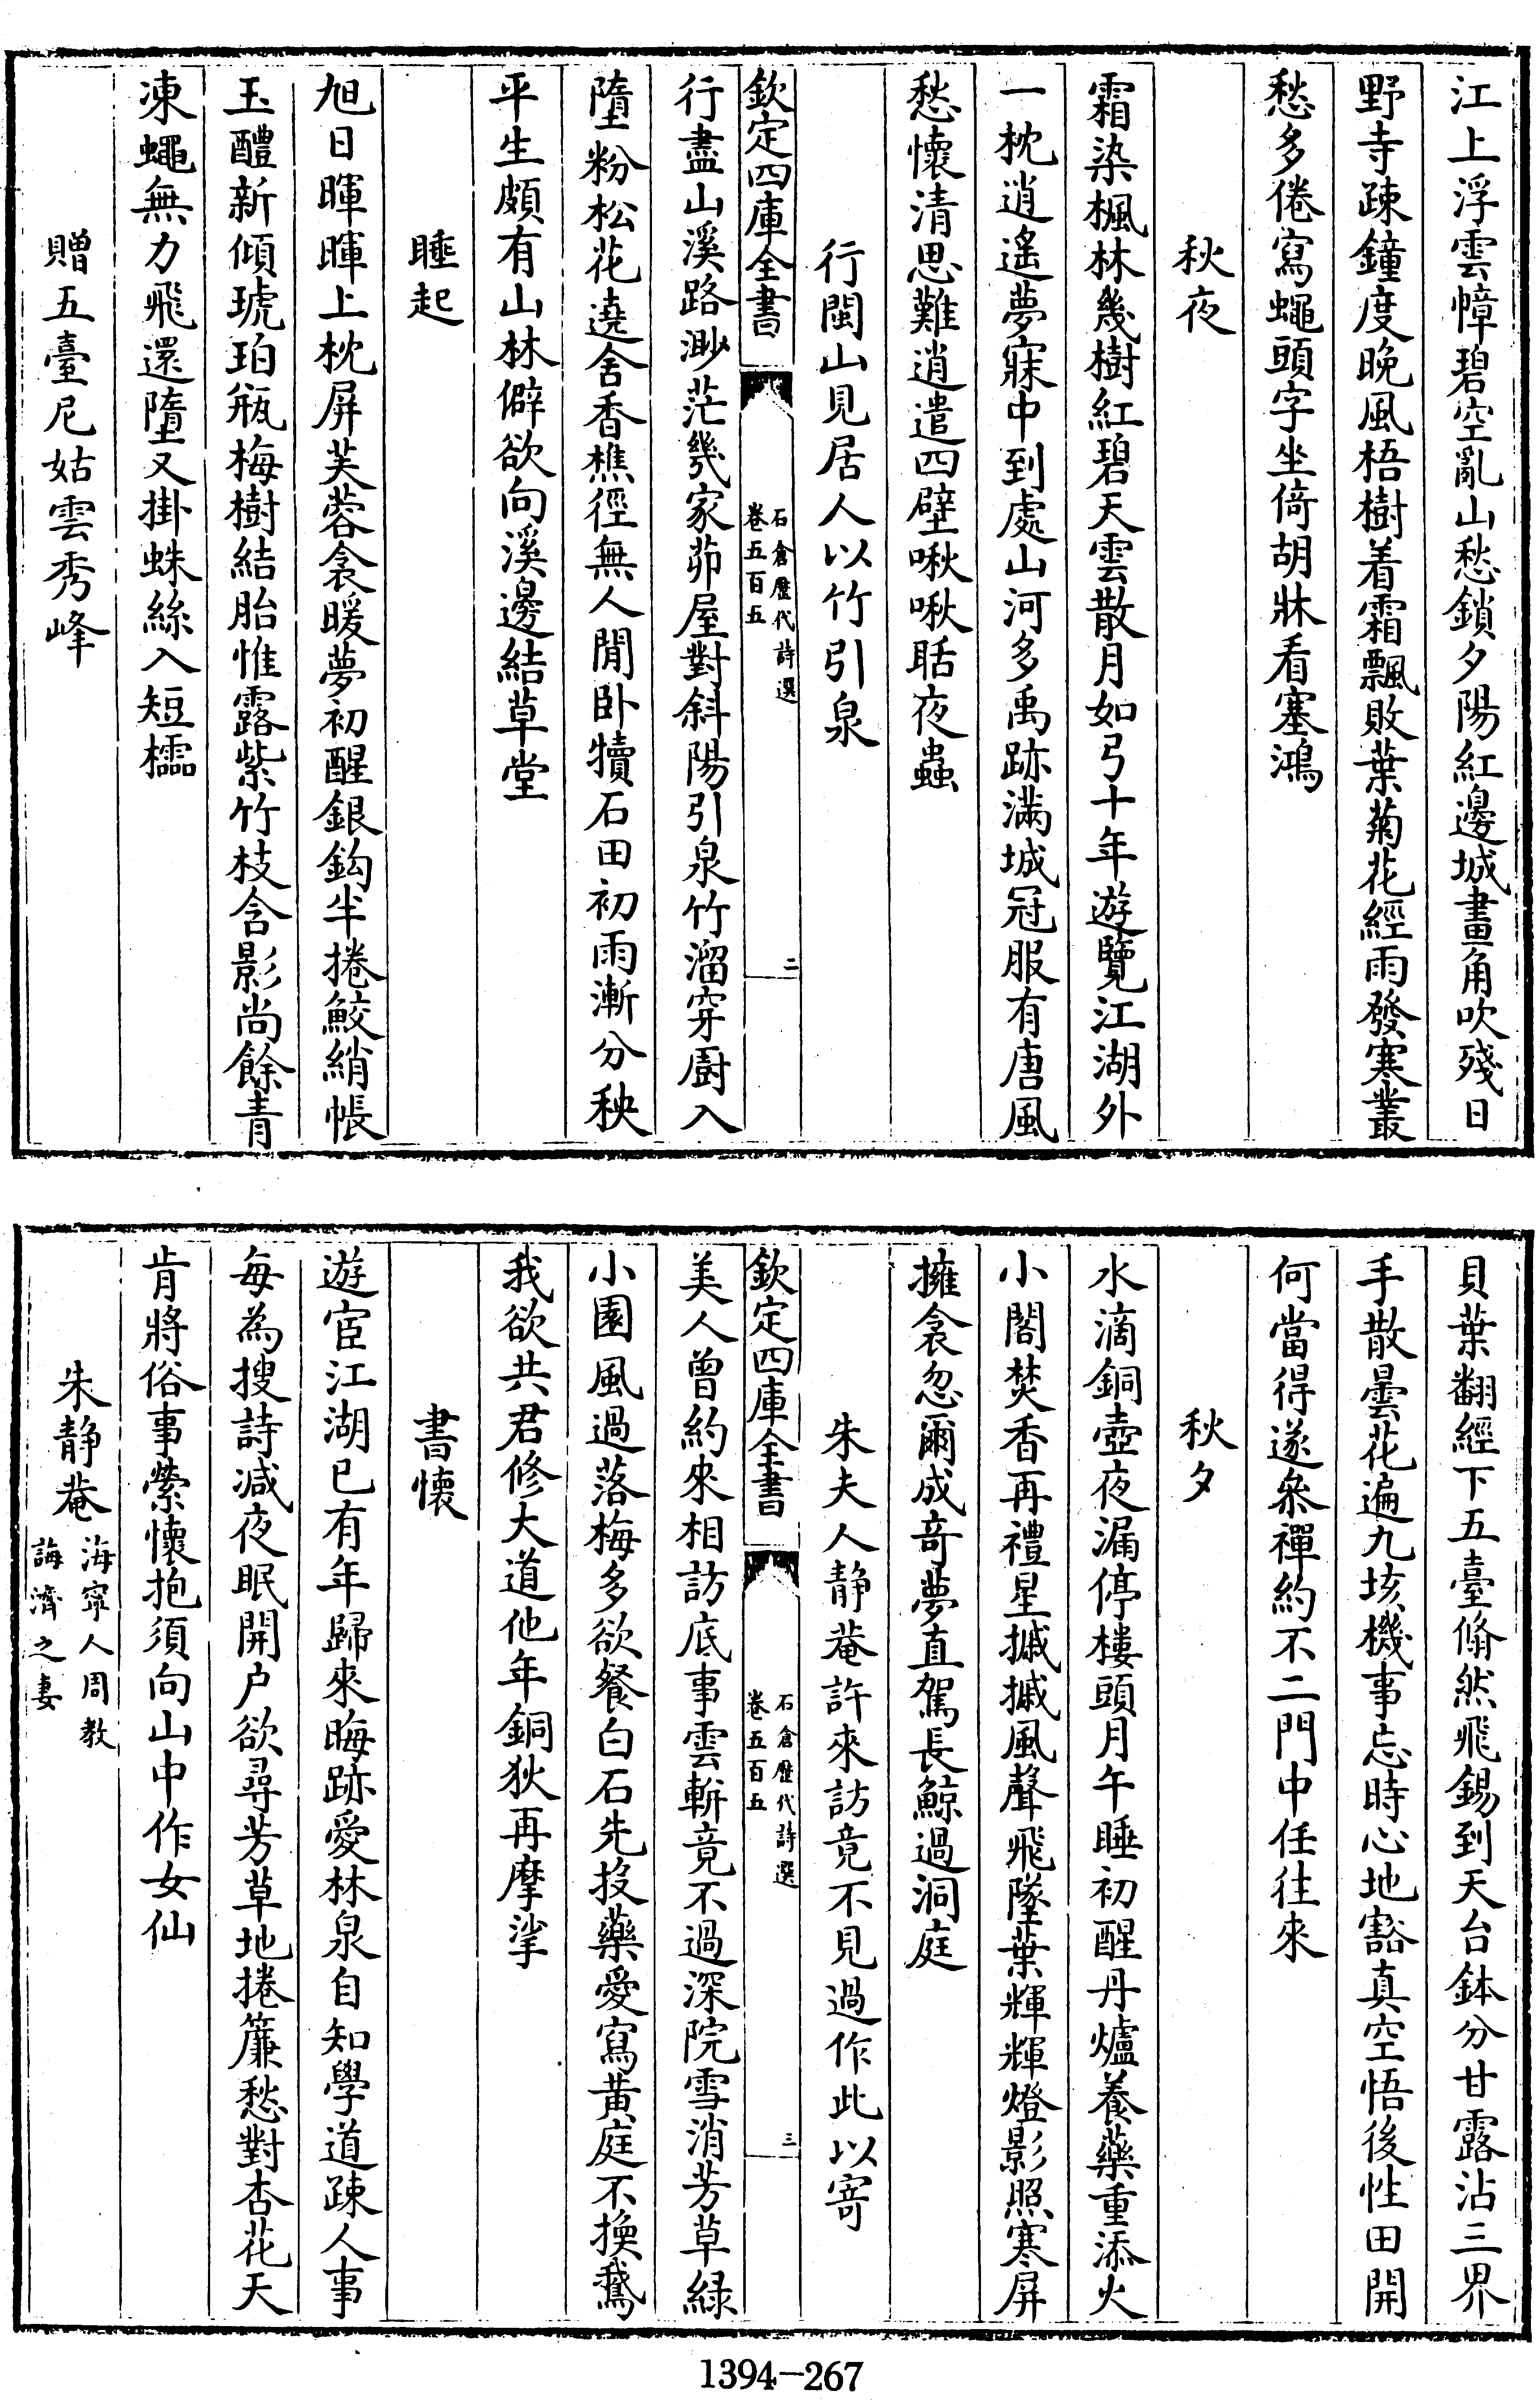 江上浮雲幛碧空亂山愁鎖夕陽紅邊城畫角吹殘日
野寺疎鐘度晚風梧樹着霜飄敗葉菊花經雨發寒叢
愁多倦寫蠅頭字坐倚胡牀看塞鴻
秋夜
霜染楓林幾樹紅碧天雲散月如弓十年遊覽江湖外
一枕逍遙夢寐中到處山河多禹跡滿城冠服有唐風
愁懷清思難逍遣四壁啾啾聒夜蟲
行閩山見居人以竹引泉
欽定四庫全書
石倉歷代詩選
卷五百五
二
行盡山溪路渺茫幾家茆屋對斜陽引泉竹溜穿厨入
墮粉松花遶舍香樵徑無人閒卧犢石田初雨漸分秧
平生頗有山林僻欲向溪邊結草堂
睡起
旭日暉暉上枕屏芙蓉衾暖夢初醒銀鈎半捲鮫綃帳
玉醴新傾琥珀瓶梅樹結胎惟露紫竹枝含影尚餘青
凍蠅無力飛還墮又掛蛛絲入短櫺
贈五臺尼姑雲秀峰
貝葉翻經下五臺翛然飛錫到天台鉢分甘露沾三界
手散曇花遍九垓機事忘時心地豁真空悟後性田開
何當得遂叅禪約不二門中任往來
秋夕
水滴銅壺夜漏停樓頭月午睡初醒丹爐養藥重添火
小閣焚香再禮星摵摵風聲飛墜葉輝輝燈影照寒屏
擁衾忽爾成竒夢直駕長鯨過洞庭
朱夫人静菴許來訪竟不見過作此以寄
欽定四庫全書
石倉歷代詩選
卷五百五
三
美人曾約來相訪底事雲軿竟不過深院雪消芳草緑
小園風過落梅多欲餐白石先投藥愛寫黄庭不換鵞
我欲共君修大道他年銅狄再摩挲
書懷
遊宦江湖已有年歸來晦跡愛林泉自知學道疎人事
每為搜詩减夜眠開户欲尋芳草地捲簾愁對杏花天
肯將俗事縈懷抱須向山中作女仙
朱静菴
海寧人周教
諭濟之妻
1394-267